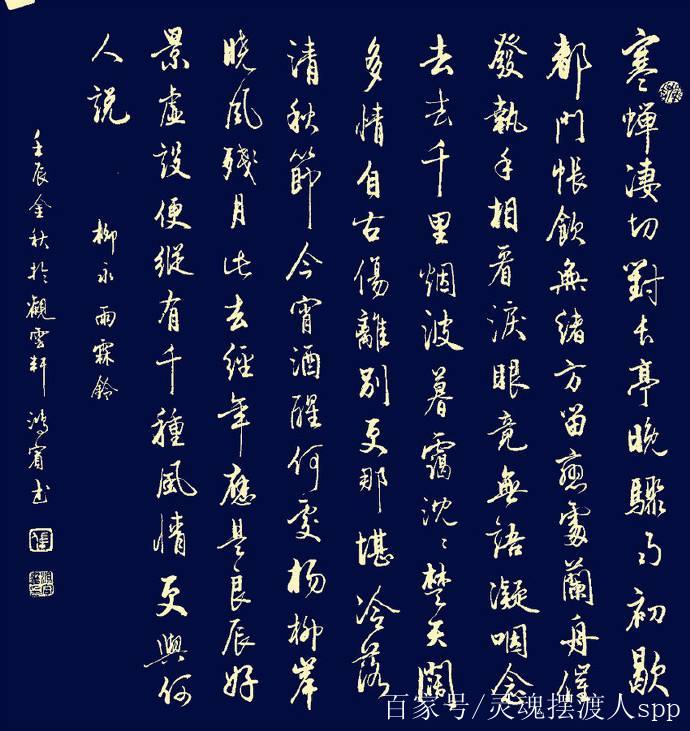 寒蟬淒切對長亭晚驟雨初歇
都門帳飲無緒方留戀處蘭舟催
發執手相看淚眼竟無語凝咽念
去去千里烟波暮靄沈〻楚天闊
多情自古傷離別更那堪冷落
清秋節今宵酒醒何處楊柳岸
曉風殘月此去經年應是良辰好
景虛設便縱有千種風情更與何
人說
柳永雨霖鈴
壬辰金秋於觀雲軒鴻賓書
百家号/灵魂摆渡人spp